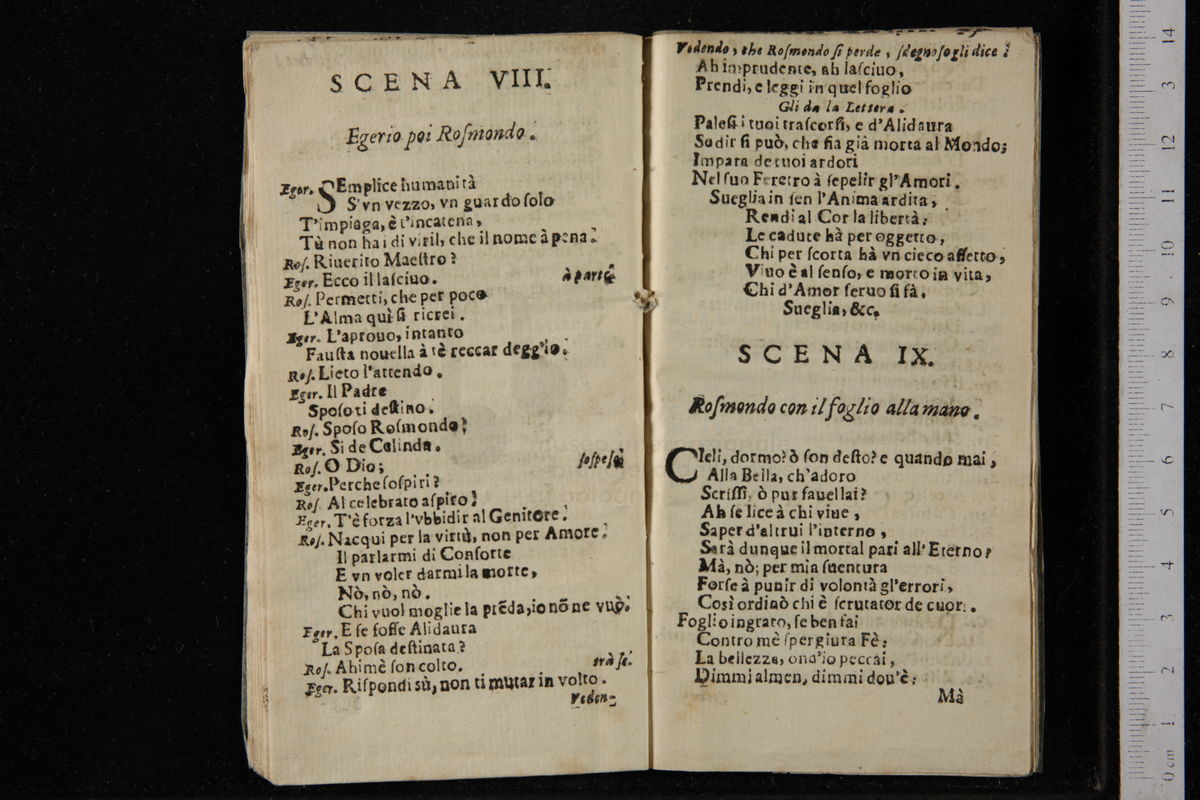 SCENA VIII.
Egerio poi Roſmondo.
Eger. SEmplice humanità
S'vn vezzo, vn guardo ſolo
T'impiaga, è t'incatena,
Tù non hai di viril, che il nome à pena.
Roſ. Riuerito Maeſtro?
Eger. Ecco il laſciuo. à parte
Roſ. Permetti, che per poco
L'Alma quì ſi ricrei.
Eger. L'aprouo, intanto
Fauſta nouella à tè reccar degg'io.
Roſ. Lieto l'attendo.
Eger. Il Padre
Spoſo ti deſtino.
Roſ. Spoſo Roſmondo?
Eger. Si de Celinda.
Roſ. O Dio; ſoſpeſo
Eger. Perche ſoſpiri?
Roſ. Al celebrato aſpiro!
Eger. T'è forza l'vbbidir al Genitore.
Roſ. Nacqui per la virtù, non per Amore.
Il parlarmi di Conſorte
E vn voler darmi la morte,
Nò, nò, nò.
Chi vuol moglie la prẽda, io nõ ne vuò.
Eger. E ſe foſſe Alidaura
La Spoſa deſtinata?
Roſ. Ahimè ſon colto. trà ſè.
Eger. Riſpondi sù, non ti mutar in volto.
Veden-
Vedendo, che Roſmondo ſi perde, ſdegnoſo gli dice:
Ah imprudente, ah laſciuo,
Prendi, e leggi in quel foglio
Gli da la Lettera.
Paleſi i tuoi traſcorſi, e d'Alidaura
Sodir ſi può, che ſia già morta al Mondo;
Impara de tuoi ardori
Nel ſuo Feretro à ſepelir gl'Amori.
Sueglia in ſen l'Anima ardita,
Rendi al Cor la libertà:
Le cadute hà per oggetto,
Chi per ſcorta hà vn cieco affetto,
Viuo è al ſenſo, e morto in vita,
Chi d'Amor ſeruo ſi fà.
Sueglia, &c.
SCENA IX.
Roſmondo con il foglio alla mano.
CIeli, dormo? ò ſon deſto? e quando mai,
Alla Bella, ch'adoro
Scriſſi, ò pur fauellai?
Ah ſe lice à chi viue,
Saper d'altrui l'interno,
Sarà dunque il mortal pari all'Eterno?
Mà, nò; per mia ſuentura
Forſe à punir di volontà gl'errori,
Così ordinò chi è ſcrutator de cuori.
Foglio ingrato, ſe ben fai
Contro mè ſpergiura Fè:
La bellezza, ond'io peccai,
Dimmi almen, dimmi dou'è:
Mà